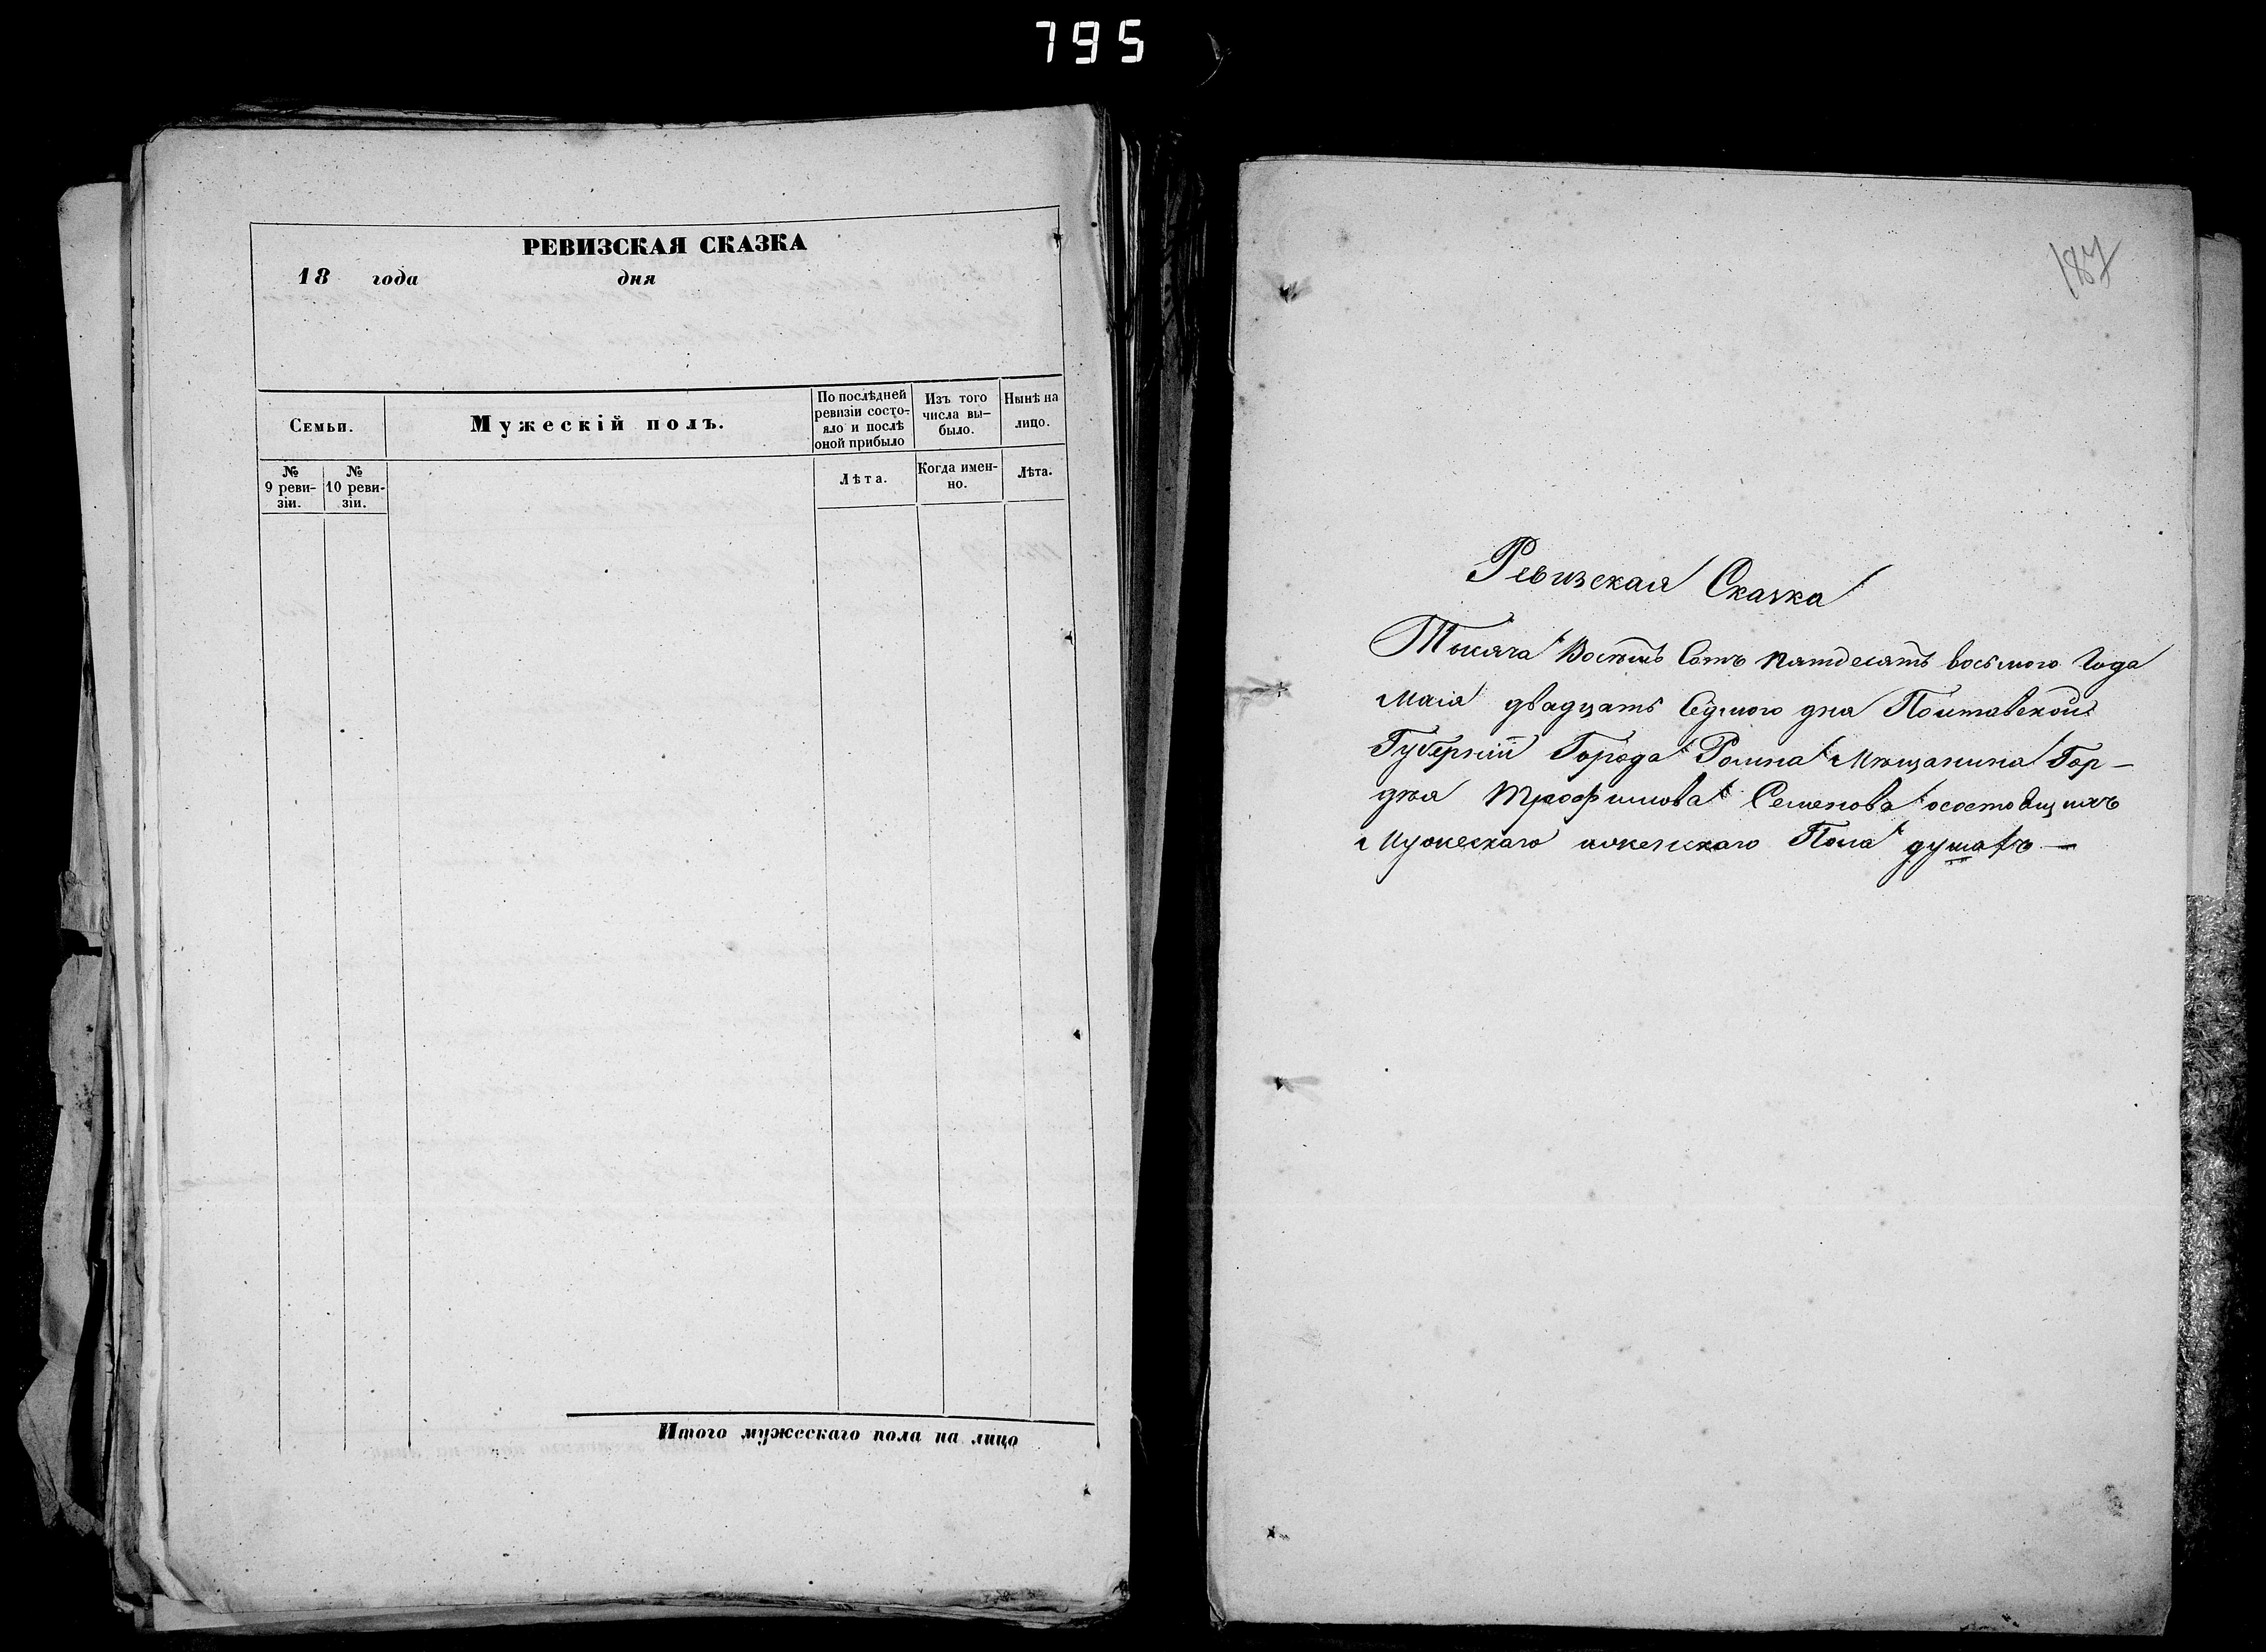 795
РЕВИЗСКАЯ СКАЗКА
18 года дня
Семьи.
Мужескій полъ.
По послѣдней ревизіи состо-яло и послѣ оной прибыло
Изъ того числа вы-было.
Нынѣ на лицо.
№ 9 реви-зіи.
№ 10 реви-зіи.
Лѣта.
Когда имен-но.
Лѣта.
Итого мужескаго пола на лицо
187
Ревизская Сказка
Тысяча Восѣмь Сотъ пятдесятъ восьмого Года
Маія двадцать Седмого дня Полтавской
Губерніи Города Ромна Мѣщанина Гор-
дѣя Трофимова Семенова осостоящихъ
Мужескаго иженскаго Пола душахъ —